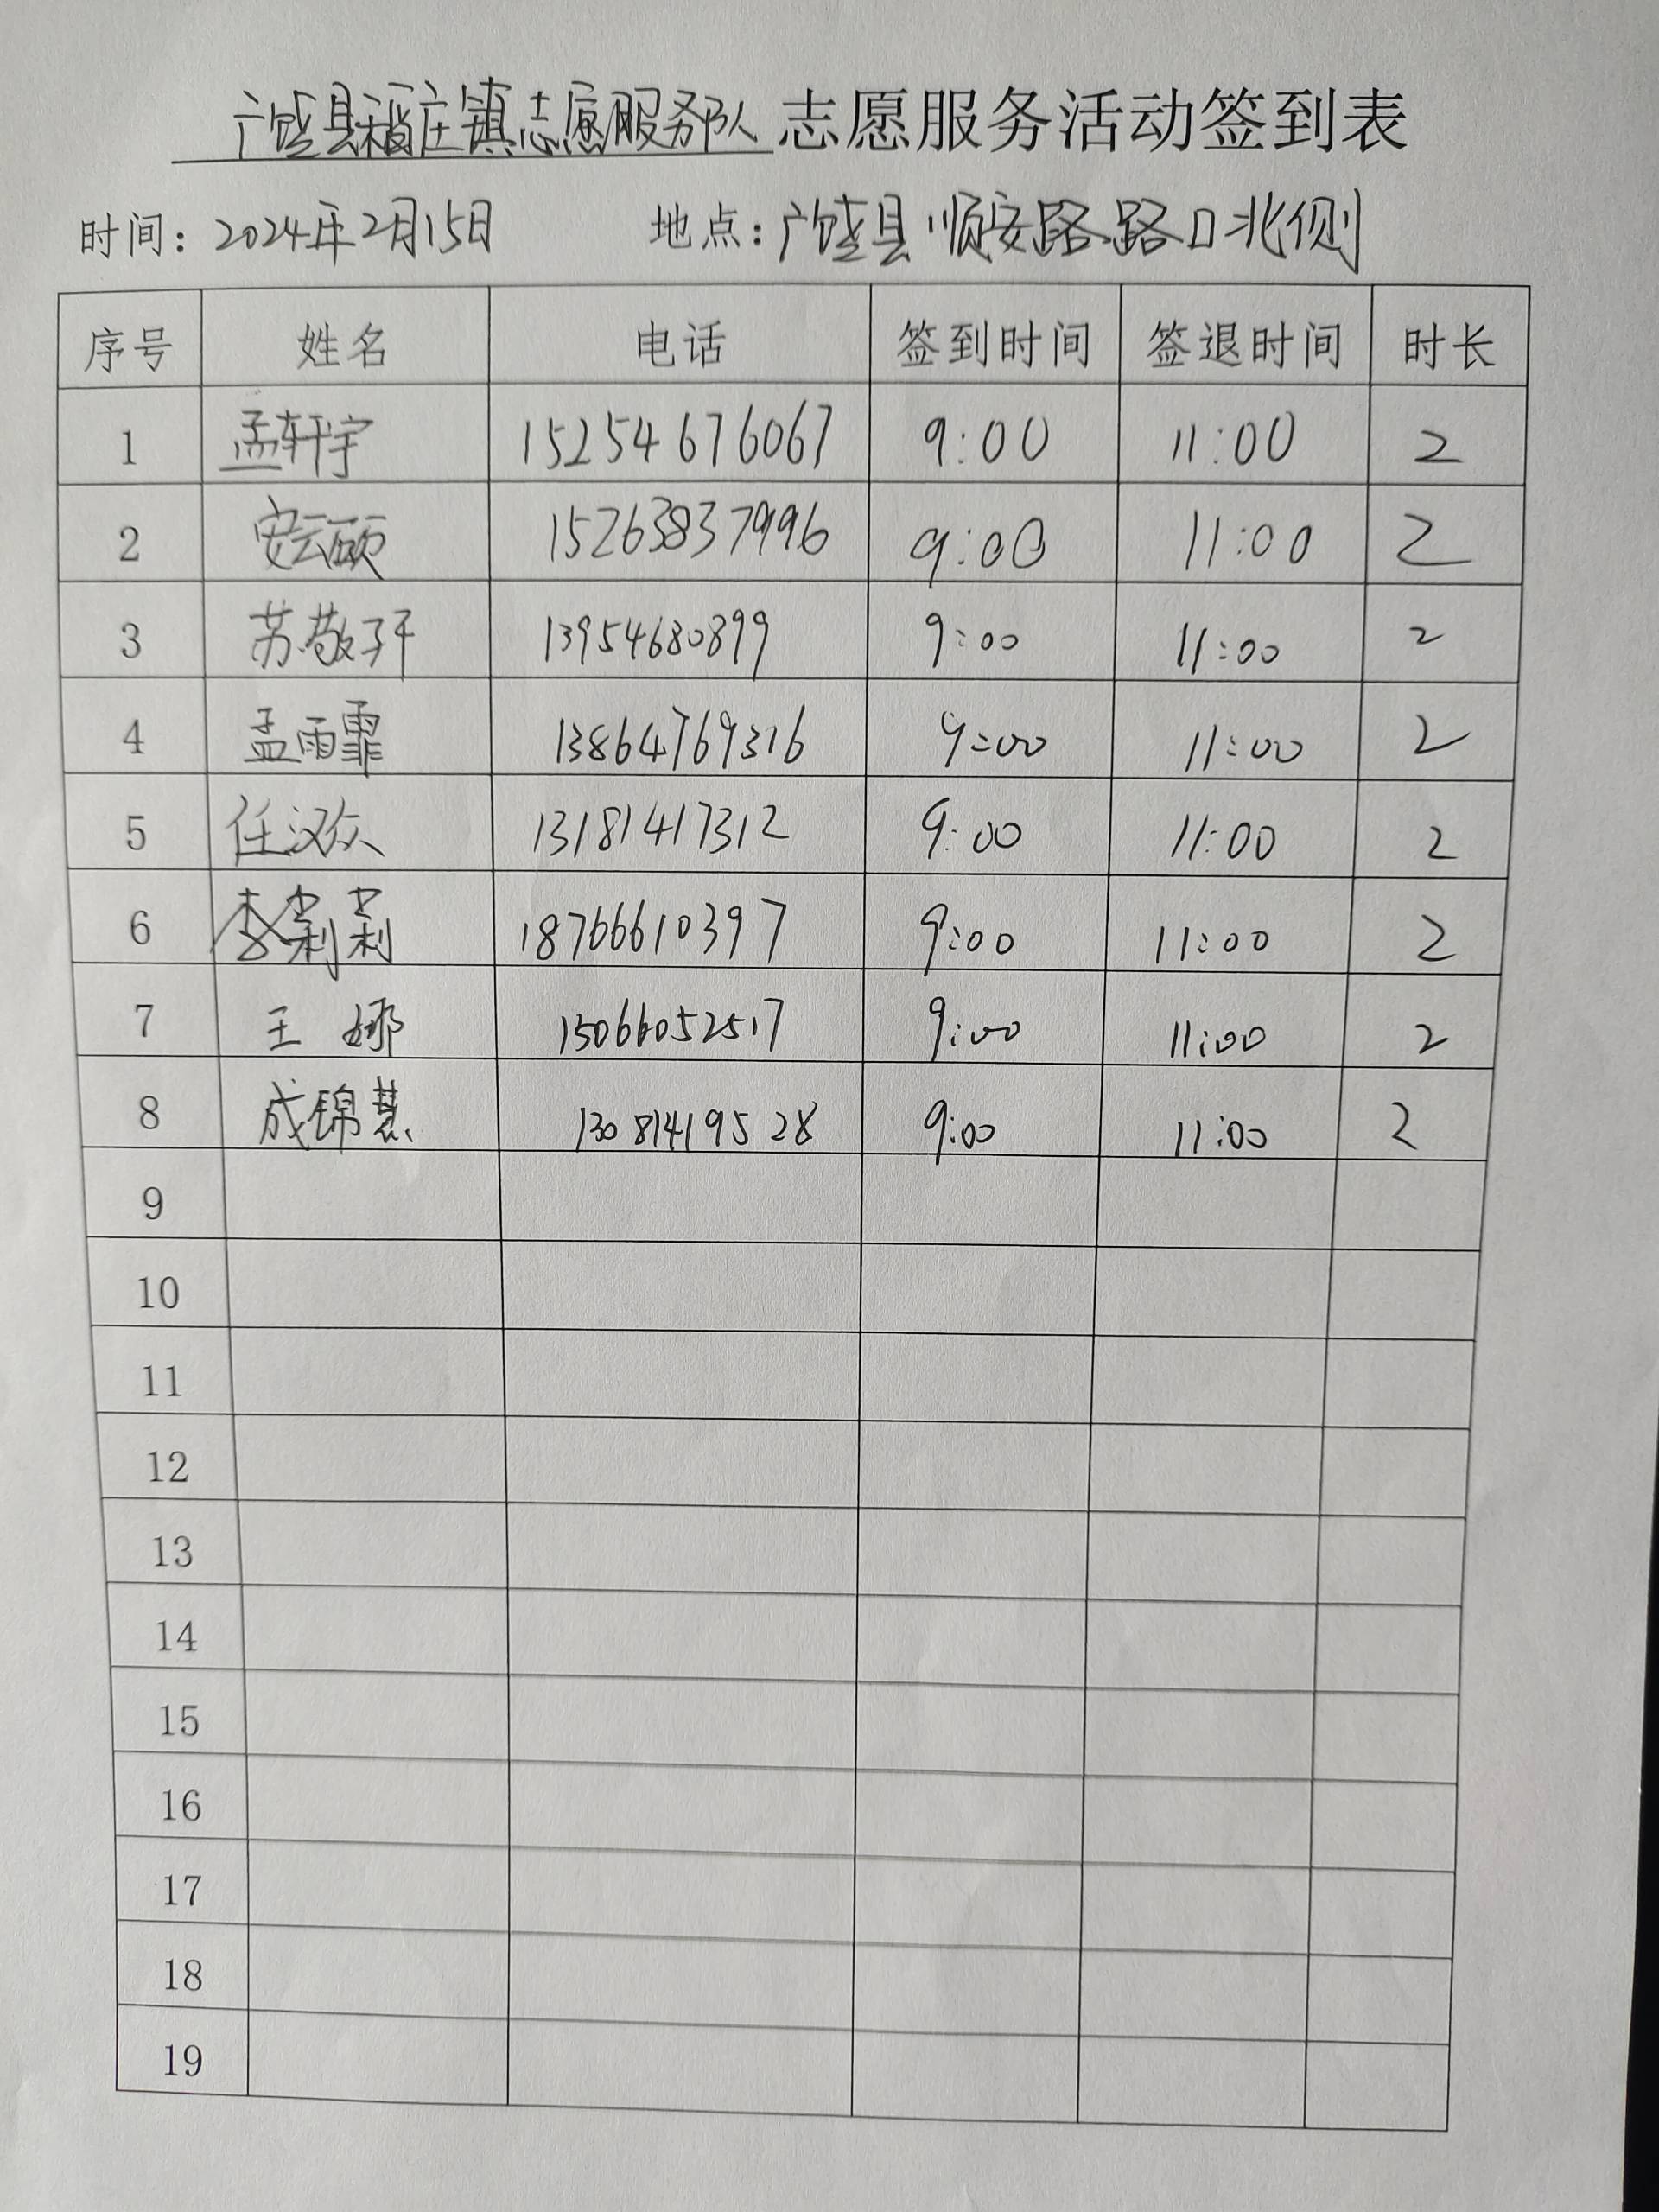 广饶县稻庄镇志愿服务队 志愿服务活动签到表
时间：2024年2月15日 地点：广饶县顺安路路口北侧
序号 姓名 电话 签到时间 签退时间 时长
1 孟轩宇 15254676067 9:00 11:00 2
2 安云硕 15263837996 9:00 11:00 2
3 苏敬轩 13954680899 9:00 11:00 2
4 孟雨霏 13864769316 9:00 11:00 2
5 任汉众 13181417312 9:00 11:00 2
6 李莉莉 18766610397 9:00 11:00 2
7 王娜 15066052517 9:00 11:00 2
8 成锦慧 13081419528 9:00 11:00 2
9
10
11
12
13
14
15
16
17
18
19